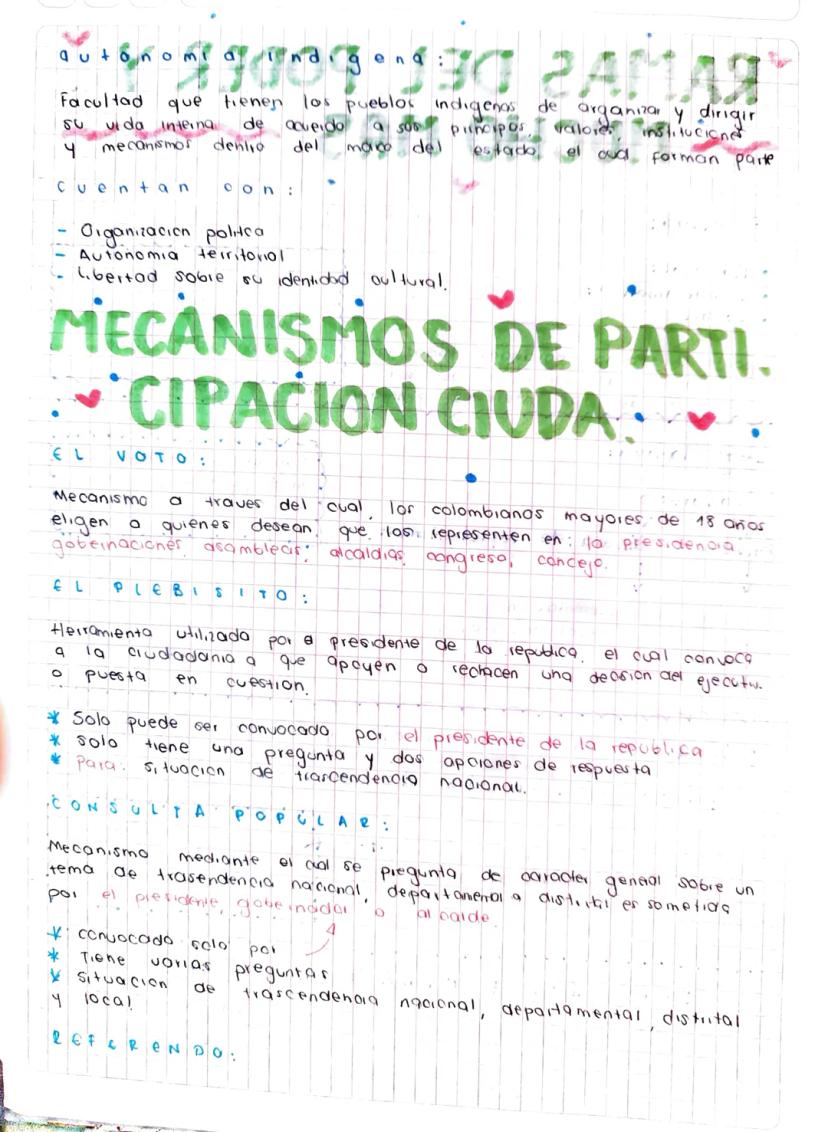 autonomia indigena:
Facultad que tienen los pueblos indigenas de organizar y dirigir
su vida interna de acuerdo a sus principos, valores, instituciones
y mecanismos dentro del maco del estado, el cual forman parte
cuentan con:
- Organizacion politca
- Autonomia territorial
- Libertad sobre su identidad cultural.
MECANISMOS DE PARTI.
CIPACION CIUDA.
EL VOTO:
Mecanismo a traves del cual, los colombianos mayores de 18 años
eligen a quienes desean que los representen en: la presidencia
gobernaciones, asambleas, alcaldias, congreso, concejo.
EL PLEBISITO:
Herramienta utilizada por el presidente de la republica, el cual convoca
a la ciudadania a que apoyen o rechacen una decision del ejecutiv.
o puesta en cuestion.
* Solo puede ser convocado por el presidente de la republica
* solo tiene una pregunta y dos opciones de respuesta
* Para: situacion de trascendencia nacional.
CONSULTA POPULAR:
Mecanismo mediante el cual se pregunta de caracter general sobre un
tema de trasendencia nacional, departamental o distrital es sometida
por el presidente, gobernador o alcalde
* convocado solo por
* Tiene varias preguntas
* situacion de trascendencia nacional, departamental, distrital
y local
REFERENDO: